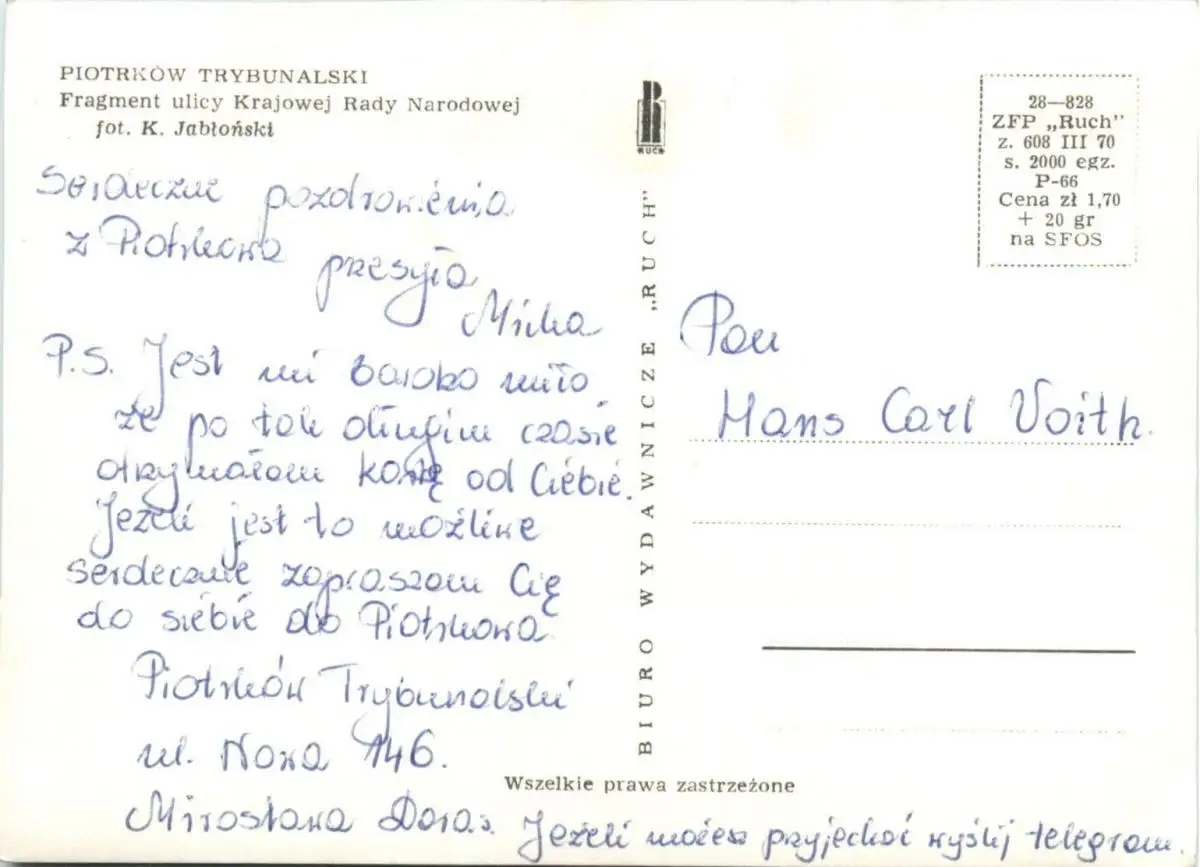 PIOTRKÓW TRYBUNALSKI
Fragment ulicy Krajowej Rady Narodowej
fot. K. Jabłoński
Serdeczne pozdrowienia
z Piotrkowa przesyła
Mirka
P.S. Jest mi bardzo miło,
że po tak długim czasie
otrzymałam kartkę od Ciebie.
Jeżeli jest to możliwe
serdecznie zapraszam Cię
do siebie do Piotrkowa
Piotrków Trybunalski
ul. Nowa 146.
Mirosława Doras.
Jeżeli możesz przyjechać wyślij telegram.
RUCH
BIURO WYDAWNICZE „RUCH"
28—828
ZFP „Ruch"
z. 608 III 70
s. 2000 egz.
P-66
Cena zł 1,70
+ 20 gr
na SFOS
Pan
Hans Carl Voith.
Wszelkie prawa zastrzeżone